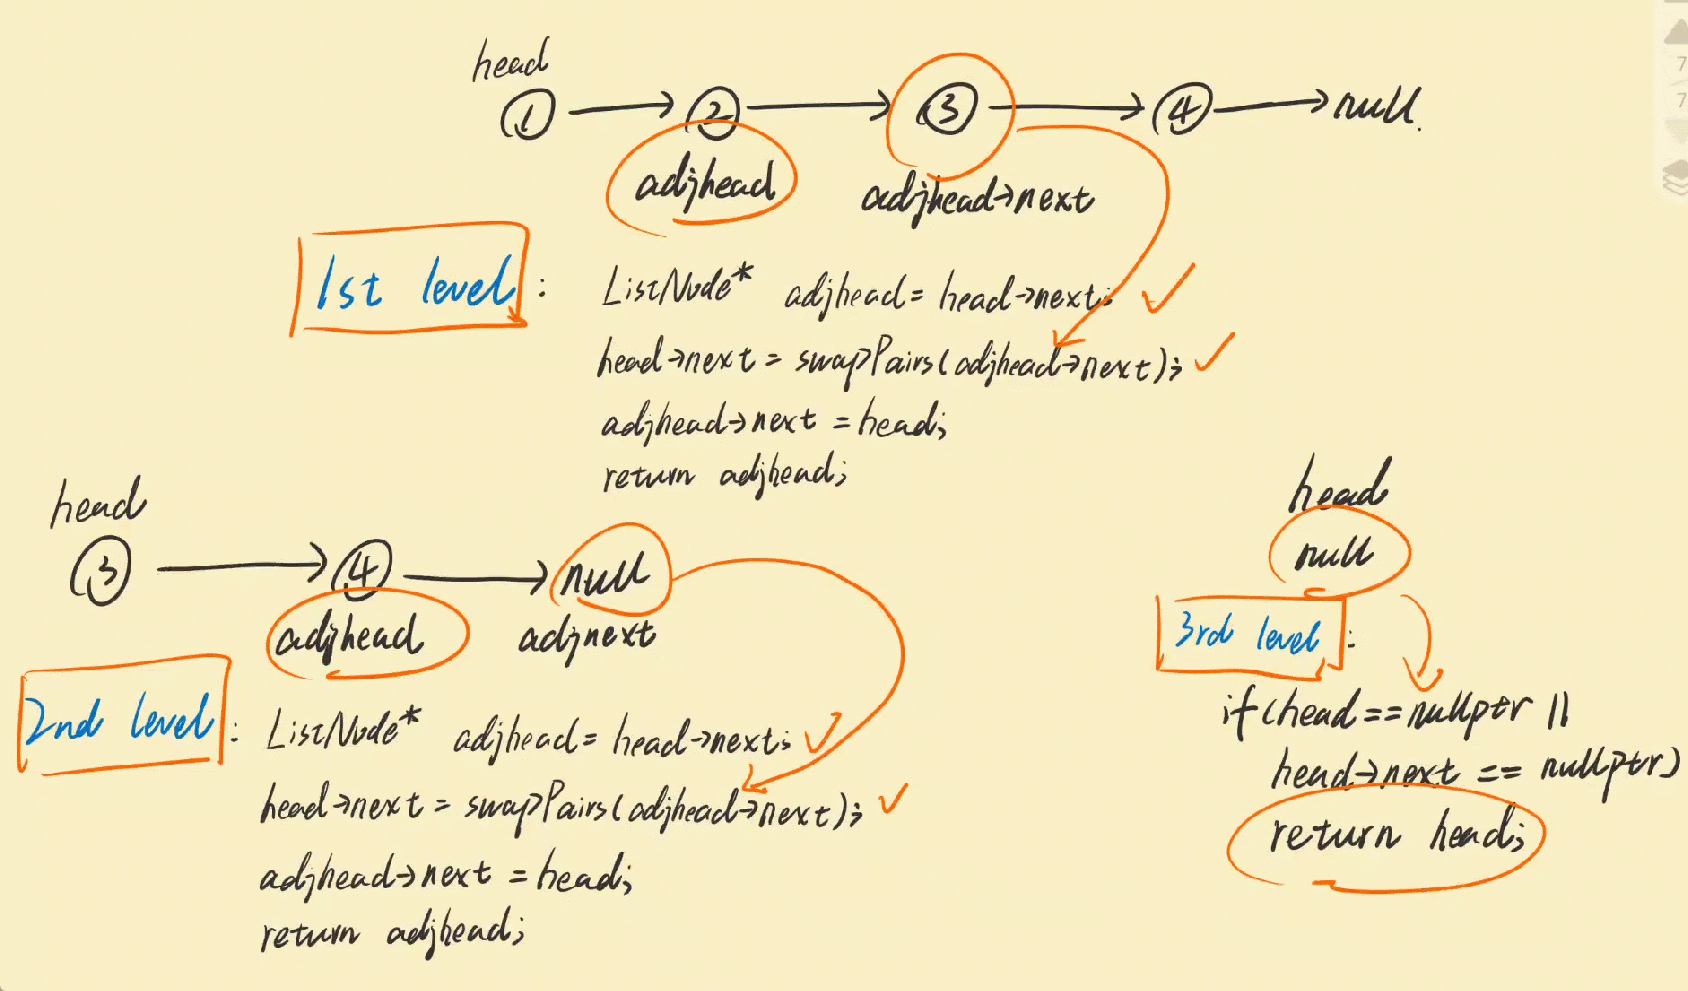 head
① → ② → ③ → ④ → null.
adjhead
adjhead→next
1st level :
ListNode* adjhead = head→next;
head→next = swapPairs(adjhead→next);
adjhead→next = head;
return adjhead;
head
③ → ④ → null
adjhead
adjnext
2nd level :
ListNode* adjhead = head→next;
head→next = swapPairs(adjhead→next);
adjhead→next = head;
return adjhead;
head
null
3rd level :
if(head==nullptr ||
head→next == nullptr)
return head;
7
7